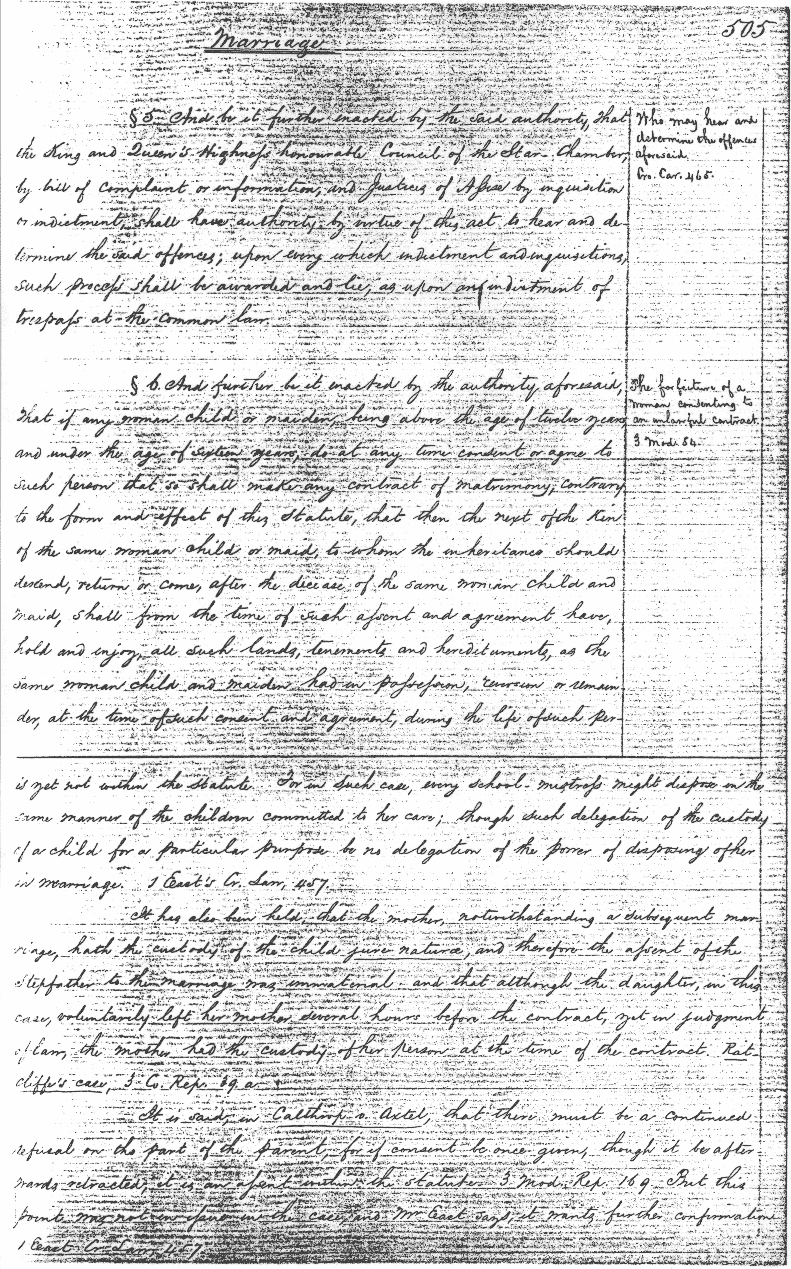 505
Marriage
§ 5 And be it further enacted by the said authority, that
the King and Queen's Highness honourable Council of the Star-Chamber,
by bill of Complaint or information, and Justices of Assise by inquisition
or indictment, shall have authority by virtue of this act to hear and de-
termine the said offences; upon every which indictment and inquisitions,
such process shall be awarded and lie, as upon an indictment of
trespass at the Common law
Who may hear and
determine the offences
aforesaid.
Cro. Car. 465.
§ 6 And further be it enacted by the authority aforesaid,
that if any woman child or maiden, being above the age of twelve years
and under the age of sixteen years, do at any time consent or agree to
such person that so shall make any contract of matrimony, contrary
to the form and effect of this Statute, that then the next of the Kin
of the same woman child or maid, to whom the inheritance should
descend, return or come, after the decease of the same woman child and
maid, shall from the time of such assent and agreement have,
hold and enjoy, all such lands, tenements and hereditaments, as the
same woman child and maiden had in possession, reversion or remain-
der, at the time of such consent and agreement, during the life of such per-
The forfeiture of a
woman consenting to
an unlawful contract.
3 Mod. 84.
is yet not within the statute. For in such case, every school-mistress might dispose in the
same manner of the children committed to her care; though such delegation of the custody
of a child for a particular purpose be no delegation of the power of disposing of her
in marriage. 1 East's Cr. Law, 457.
It has also been held, that the mother, notwithstanding a subsequent mar-
riage, hath the custody of the child jure naturæ, and therefore the assent of the
stepfather to the marriage was immaterial. and that although the daughter, in this
case, voluntarily left her mother several hours before the contract, yet in judgment
of law, the mother had the custody of her person at the time of the contract. Rat-
cliffe's case, 3 Co. Rep. 39. a.
It is said, in Calthrop v. Axtel, that there must be a continued
refusal on the part of the parent, for if consent be once given, though it be after-
wards retracted, it is an assent within the statute. 3 Mod. Rep. 169. But this
point was not in issue in the case, and Mr East says, it wants further confirmation
1 East Cr. Law, 457.